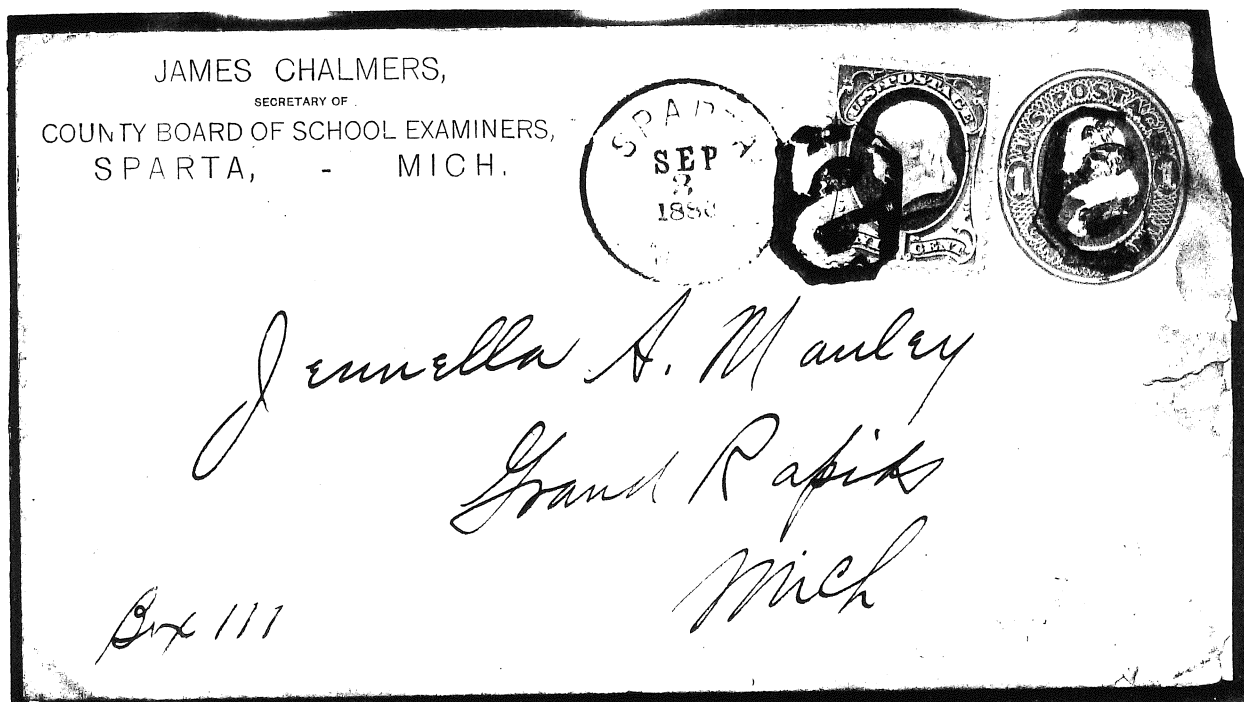 JAMES CHALMERS,
SECRETARY OF
COUNTY BOARD OF SCHOOL EXAMINERS,
SPARTA, - MICH.
SPARTA
SEP
U.S. POSTAGE
CENT
U.S. POSTAGE
1 1
Jennella A. Manley
Grand Rapids
Mich
Box 111